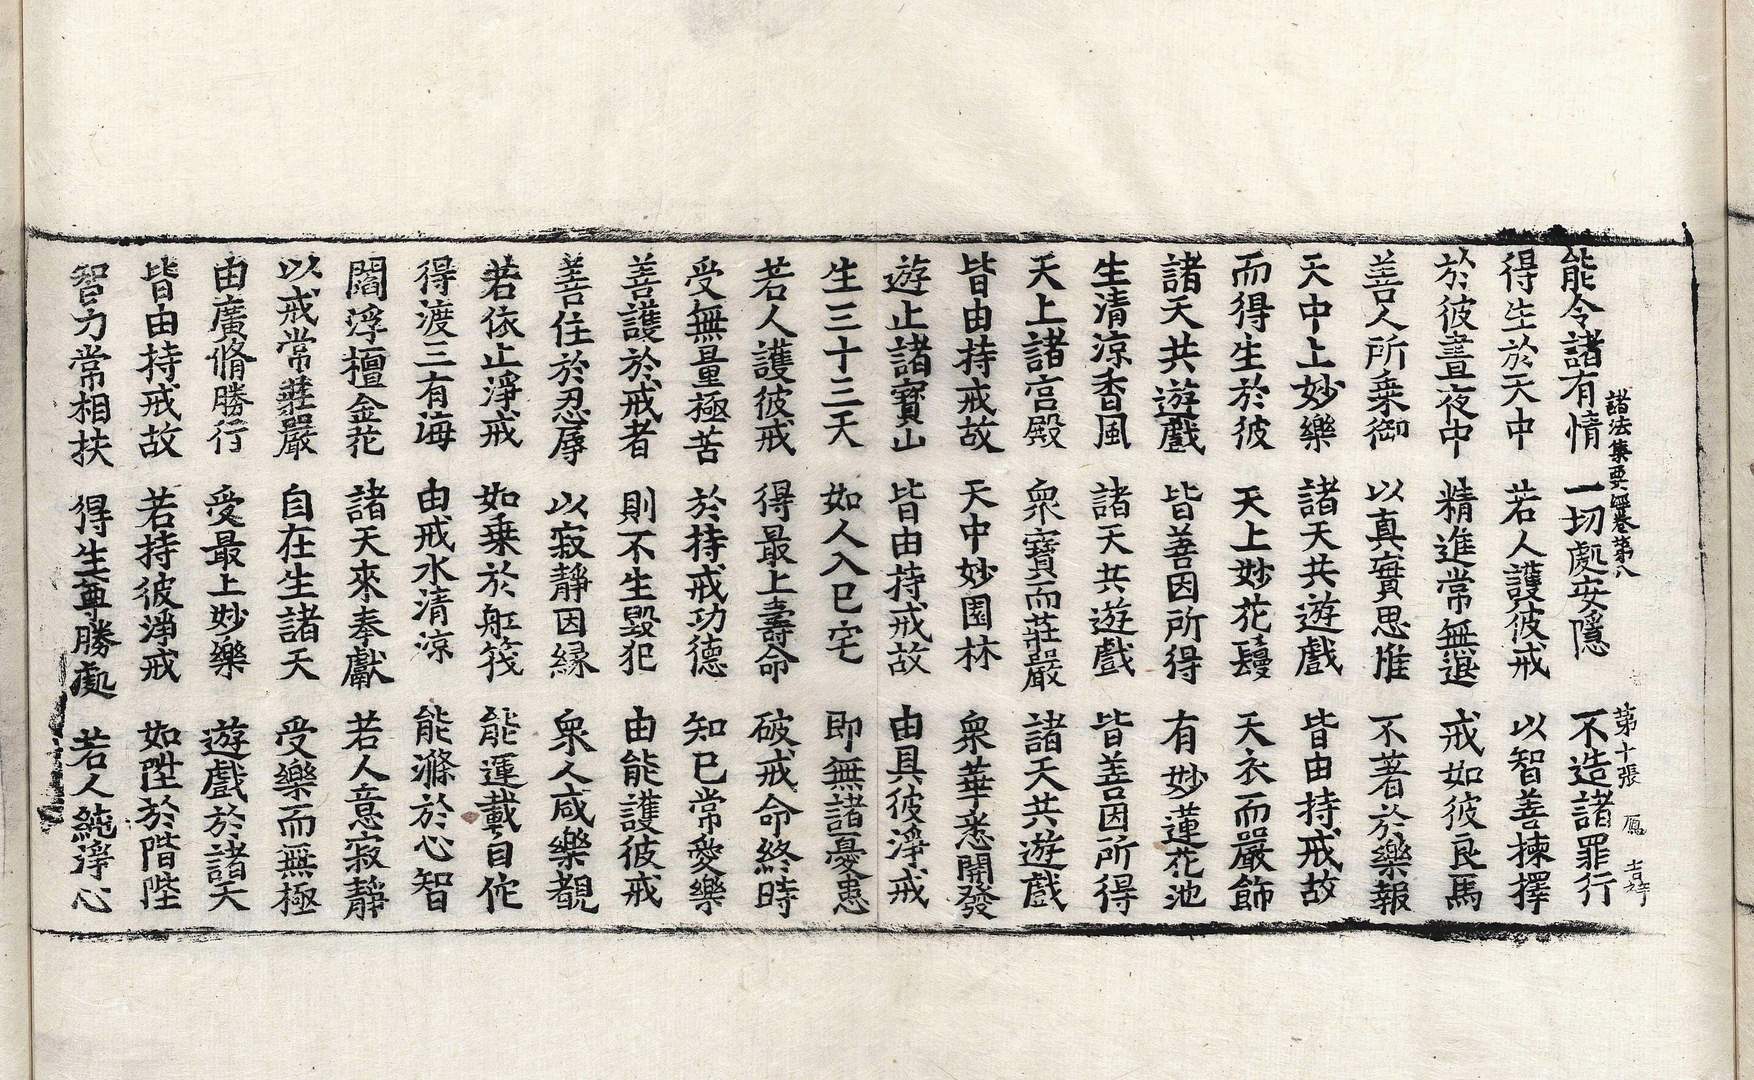 諸法集要經卷第八　第十張　鳳　吉祥
能令諸有情　一切處安隱　不造諸罪行
得生於天中　若人護彼戒　以智善揀擇
於彼晝夜中　精進常無退　戒如彼良馬
善人所乗御　以真實思惟　不著於樂報
天中上妙樂　諸天共遊戲　皆由持戒故
而得生於彼　天上妙花鬘　天衣而嚴飾
諸天共遊戲　皆善因所得　有妙蓮花池
生清涼香風　諸天共遊戲　皆善因所得
天上諸宮殿　衆寶而莊嚴　諸天共遊戲
皆由持戒故　天中妙園林　衆華悉開發
遊止諸寶山　皆由持戒故　由具彼淨戒
生三十三天　如人入已宅　即無諸憂患
若人護彼戒　得最上壽命　破戒命終時
受無量極苦　於持戒功德　知已常愛樂
善護於戒者　則不生毀犯　由能護彼戒
善住於忍辱　以寂靜因縁　衆人咸樂覩
若依止淨戒　如乗於舡筏　能運載自佗
得渡三有海　由戒水清涼　能滌於心智
閻浮檀金花　諸天來奉獻　若人意寂靜
以戒常莊嚴　自在生諸天　受樂而無極
由廣脩勝行　受最上妙樂　遊戲於諸天
皆由持戒故　若持彼淨戒　如陞於階陛
智力常相扶　得生尊勝處　若人純淨心